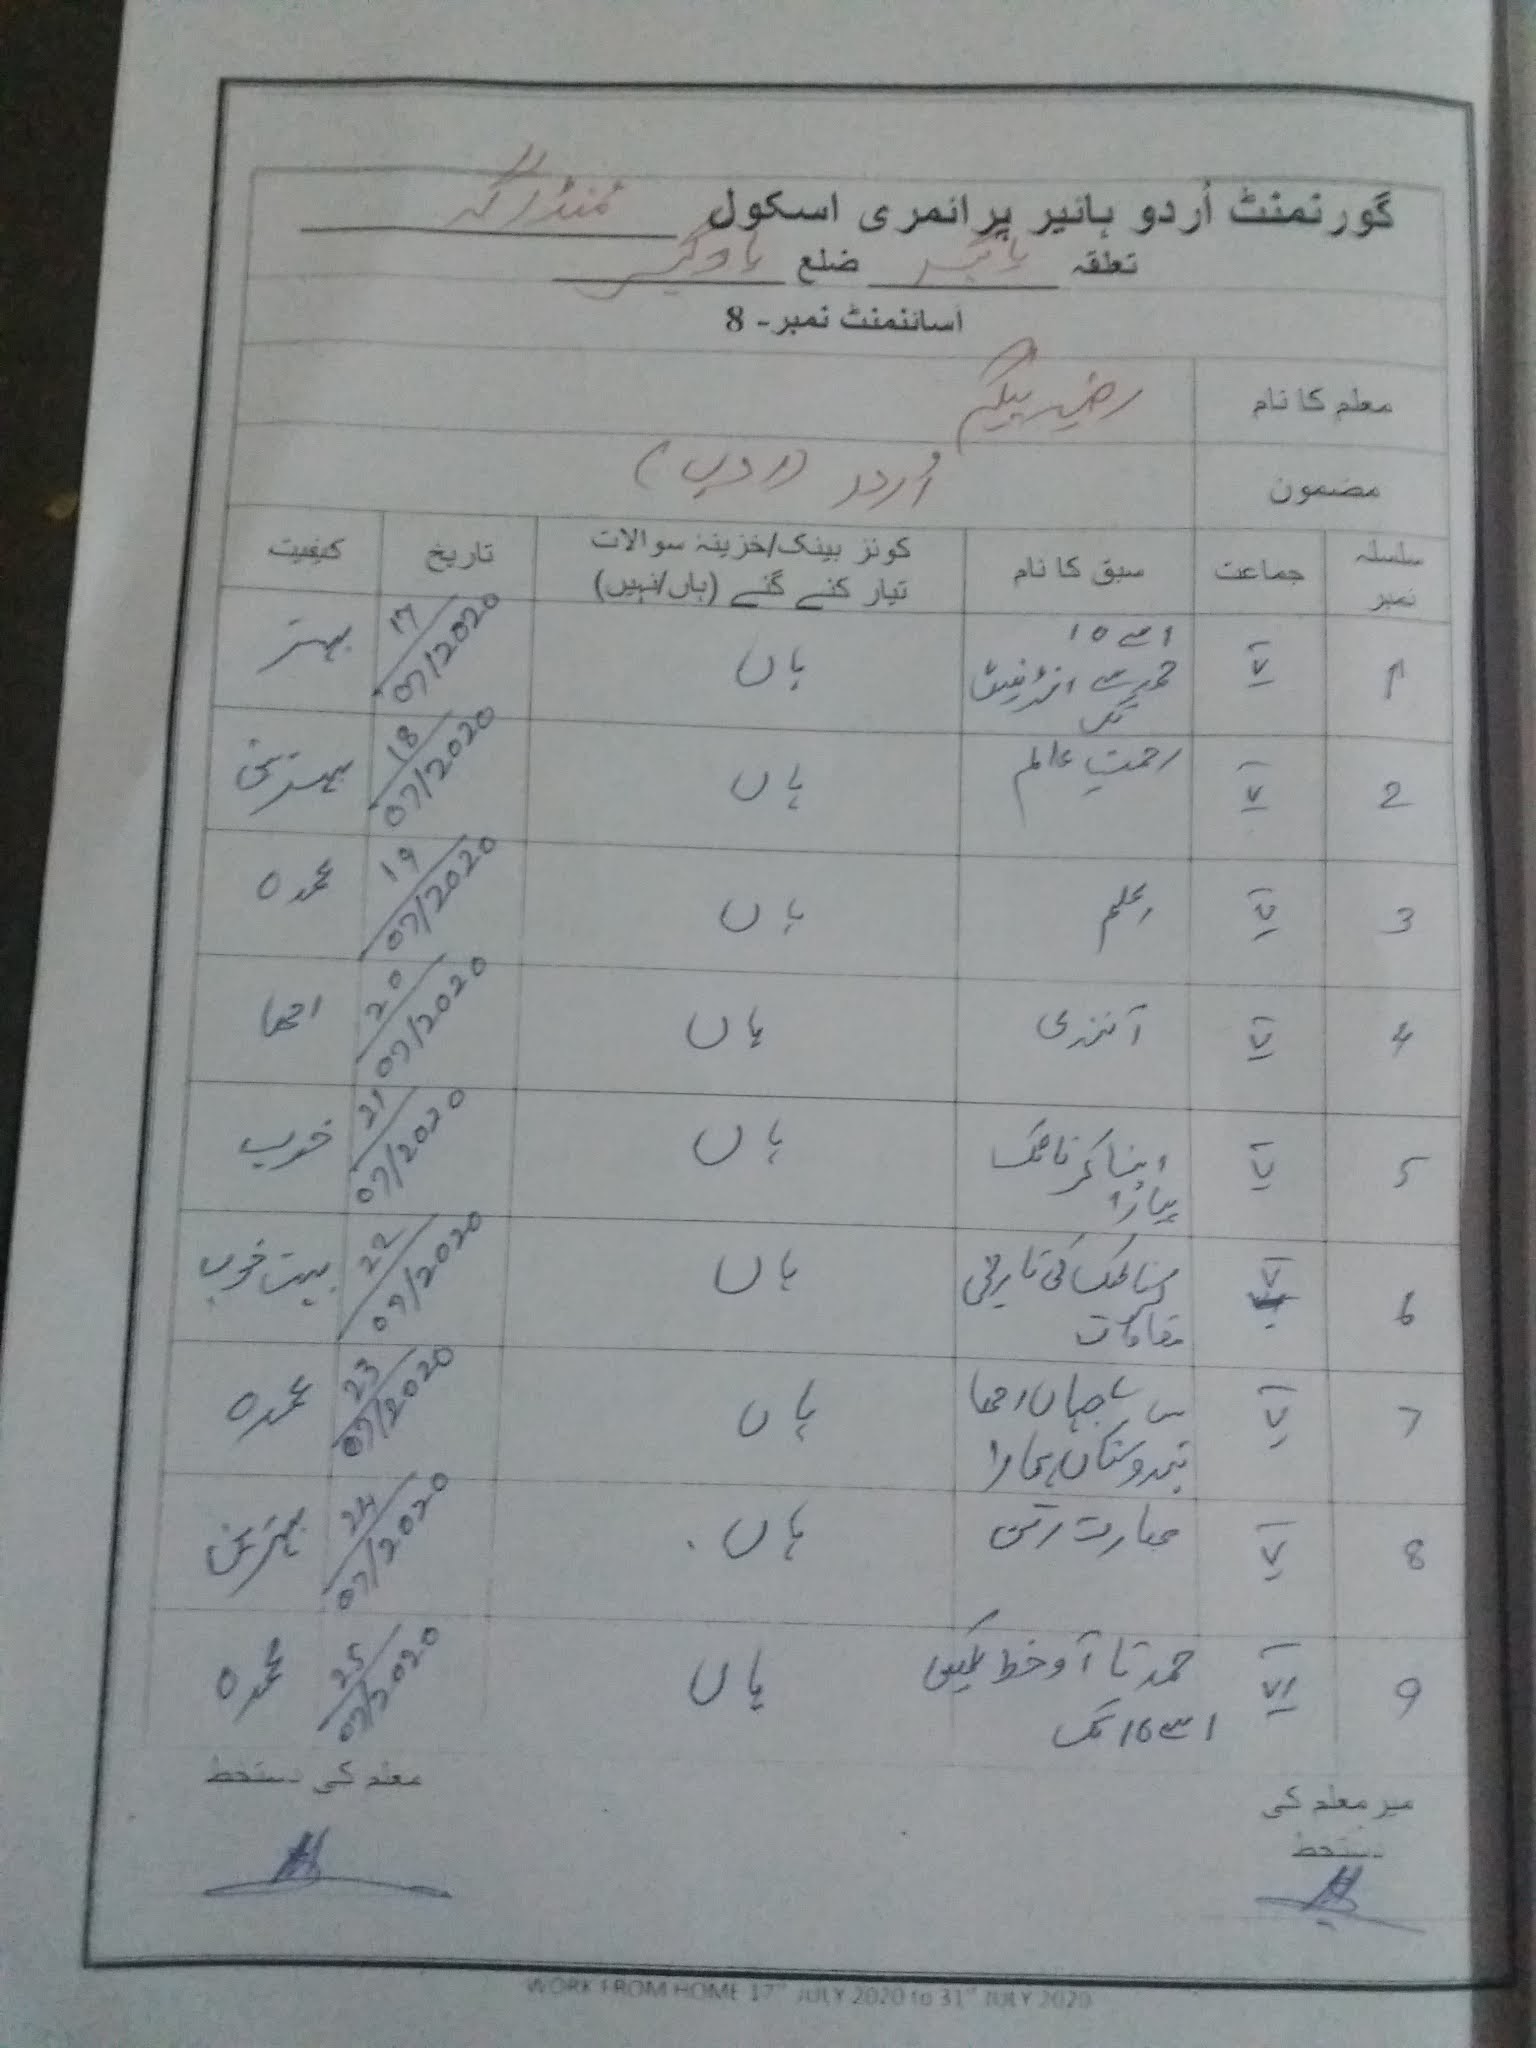 گورنمنٹ اُردو ہائیر پرائمری اسکول
تعلقہ ضلع
اسائنمنٹ نمبر۔ 8
معلم کا نام رضیہ بیگم
مضمون اُردو
سلسلہ نمبر جماعت سبق کا نام کوئز بینک/خزینۂ سوالات تیار کئے گئے (ہاں/نہیں) تاریخ کیفیت
1 V ہاں 17/07/2020 بہتر
2 V رحمتِ عالم ہاں 18/07/2020 بہترین
3 V ہاں 19/07/2020 عمدہ
4 V ہاں 20/07/2020 اچھا
5 V اپنا کرناٹک پیارا ہاں 21/07/2020 خوب
6 V کی تاریخی مقامات ہاں 22/07/2020 بہت خوب
7 V سارے جہاں اچھا ہندوستاں ہمارا ہاں 23/07/2020 عمدہ
8 V بھارت رتن ہاں 24/07/2020 بہترین
9 VI حمد تا آو خط لکھیں
1 سے 16 تک ہاں 25/07/2020 عمدہ
میر معلم کی دستخط
معلم کی دستخط
WORK FROM HOME 17th JULY 2020 to 31st JULY 2020